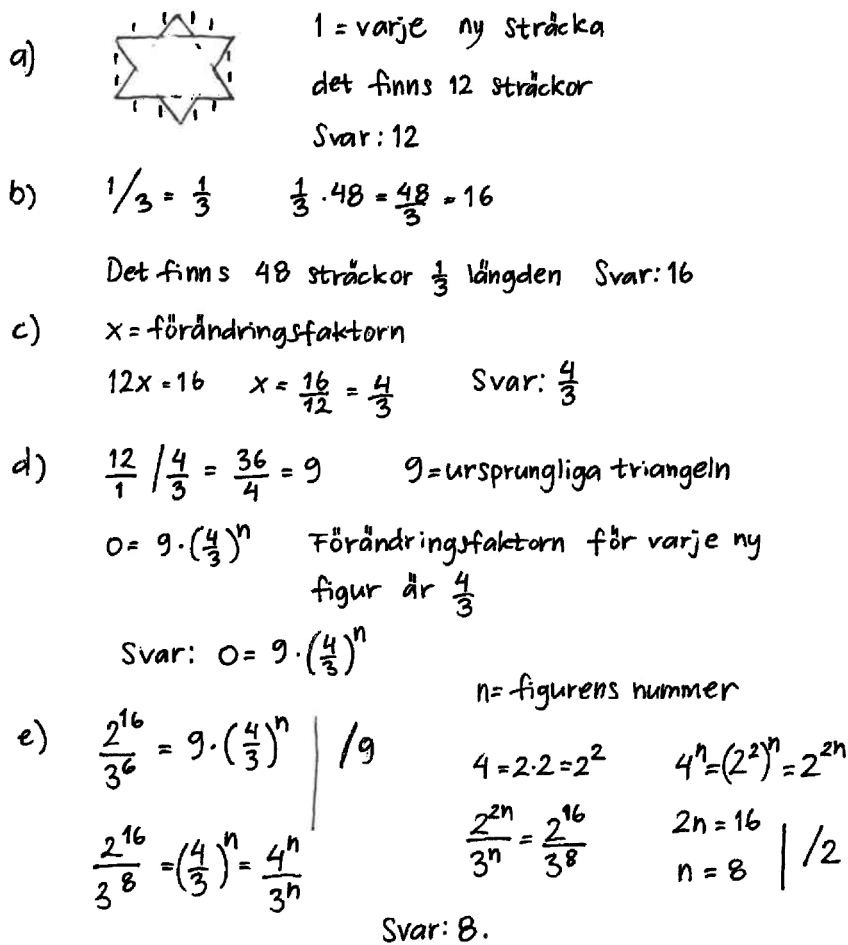 a) 1 = varje ny sträcka
det finns 12 sträckor
Svar: 12
b) 1/3 = 1/3 1/3 · 48 = 48/3 = 16
Det finns 48 sträckor 1/3 längden Svar: 16
c) x = förändringsfaktorn
12x = 16 x = 16/12 = 4/3 Svar: 4/3
d) 12/1 / 4/3 = 36/4 = 9 9 = ursprungliga triangeln
O = 9 · (4/3)^n Förändringsfaktorn för varje ny
figur är 4/3
Svar: O = 9 · (4/3)^n
n = figurens nummer
e) 2^16/3^6 = 9 · (4/3)^n | /9
2^16/3^8 = (4/3)^n = 4^n/3^n
4 = 2·2 = 2^2 4^n = (2^2)^n = 2^2n
2^2n/3^n = 2^16/3^8 2n = 16 | /2
n = 8
Svar: 8.